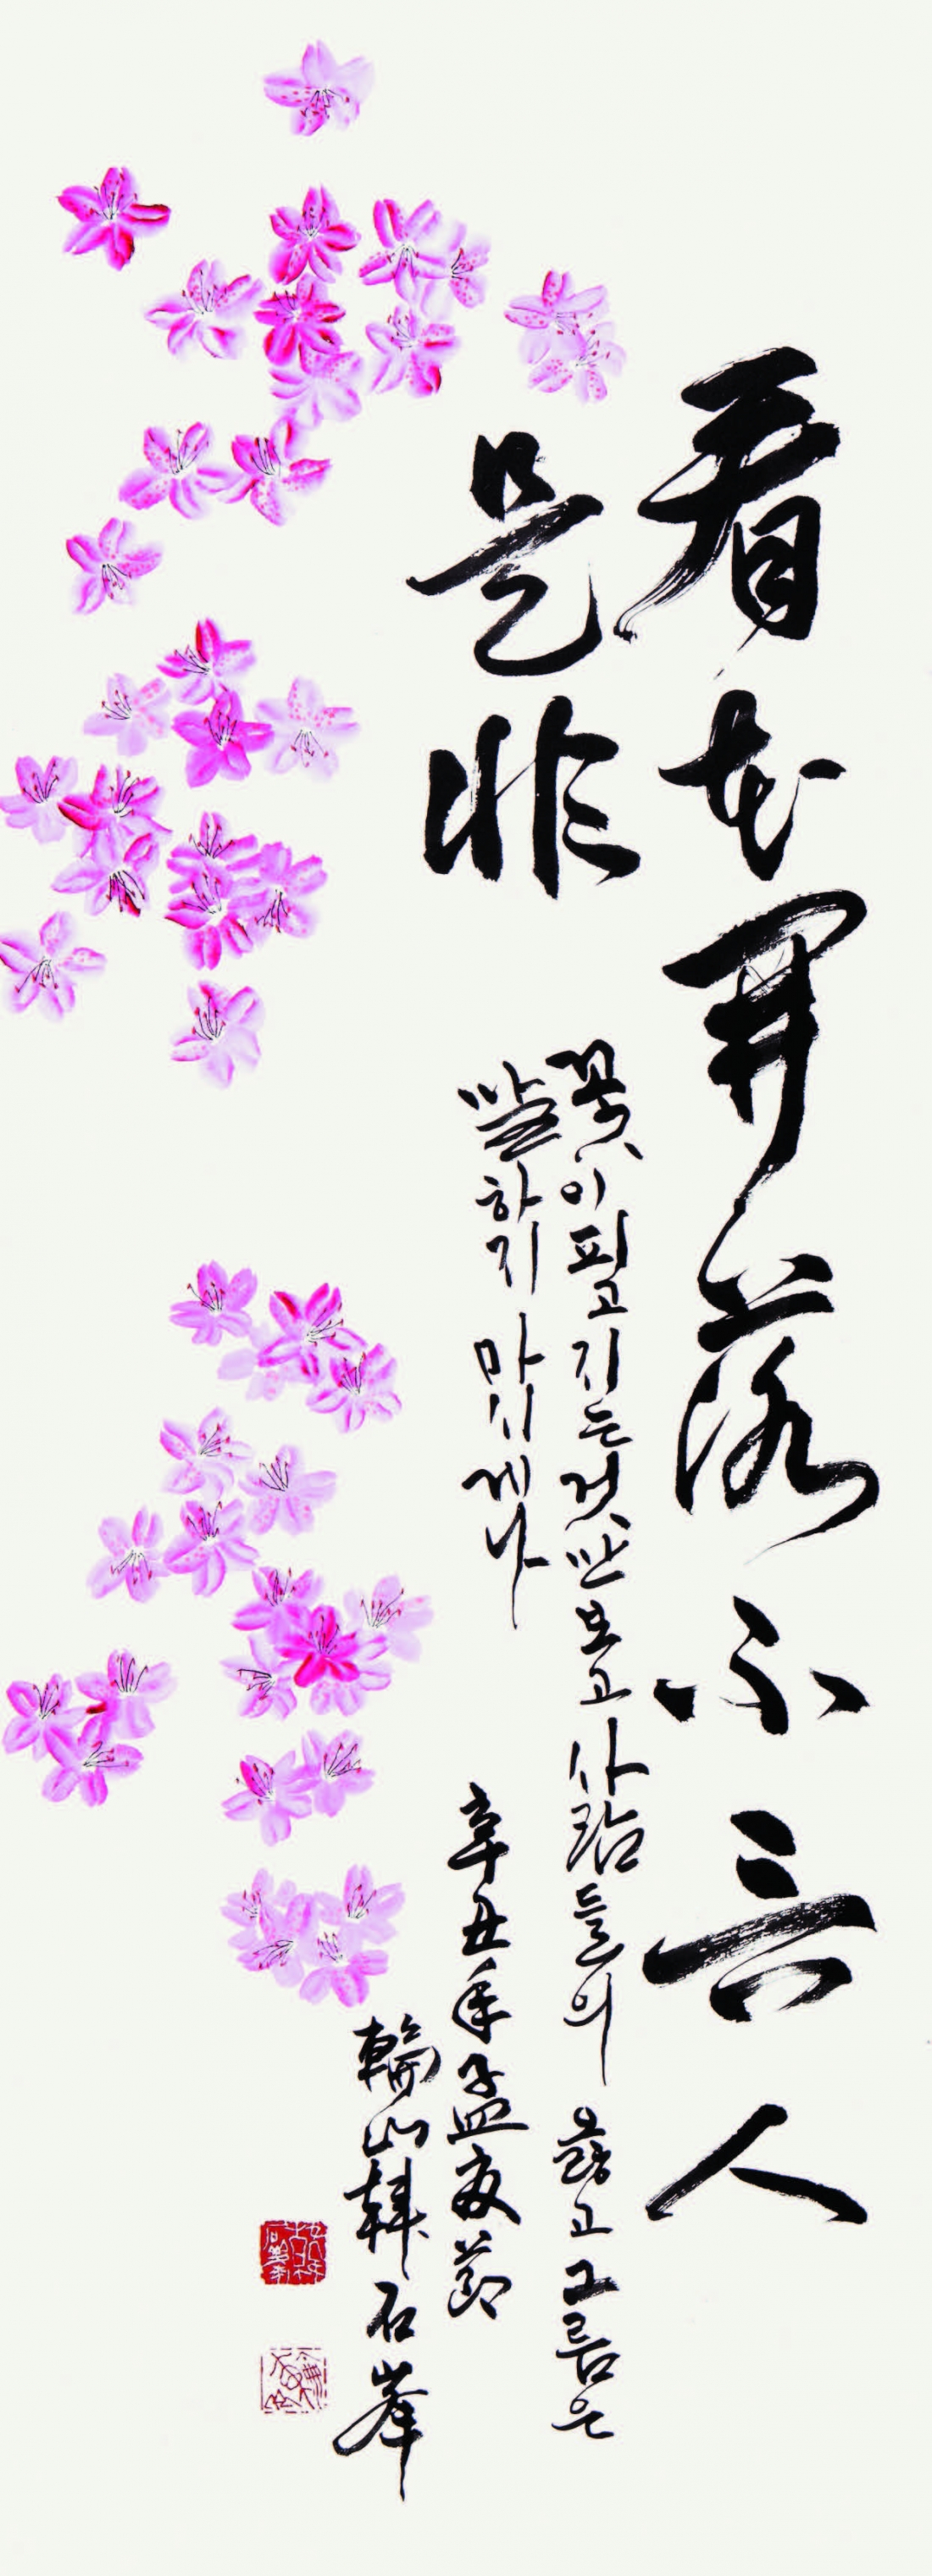 看花開落不言人
是非
꽃이 피고 지는 것만 보고 사람들의 옳고 그름은
말하지 마시게나
辛丑年孟夏節
輪山韓石峯